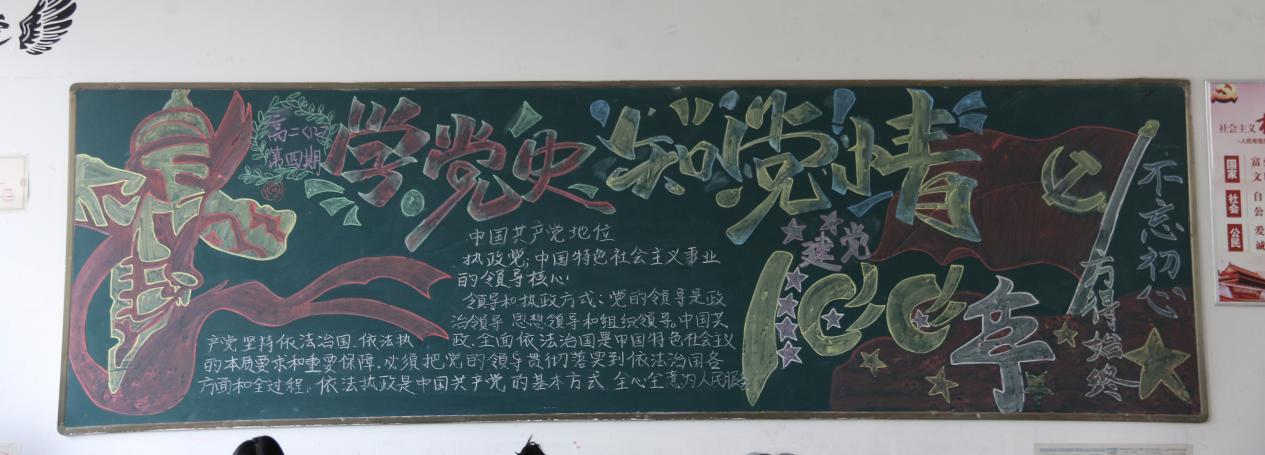 高二(12)
第四期
学党史 知党情
中国共产党地位
执政党,中国特色社会主义事业
的领导核心
领导和执政方式:党的领导是政
治领导 思想领导和组织领导。中国共
产党坚持依法治国、依法执政,全面依法治国是中国特色社会主义
的本质要求和重要保障,必须把党的领导贯彻落实到依法治国各
方面和全过程,依法执政是中国共产党的基本方式 全心全意为人民服务
建党
100年
不忘初心
方得始终
社会主义
国家
社会
公民